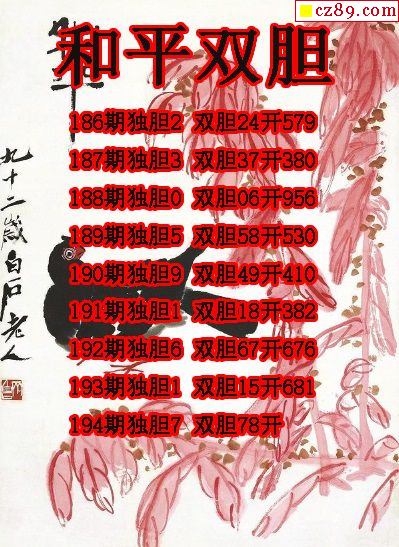 cz89.com
和平双胆
186期独胆2 双胆24开579
187期独胆3 双胆37开380
188期独胆0 双胆06开956
189期独胆5 双胆58开530
190期独胆9 双胆49开410
191期独胆1 双胆18开382
192期独胆6 双胆67开676
193期独胆1 双胆15开681
194期独胆7 双胆78开
九十二岁白石老人